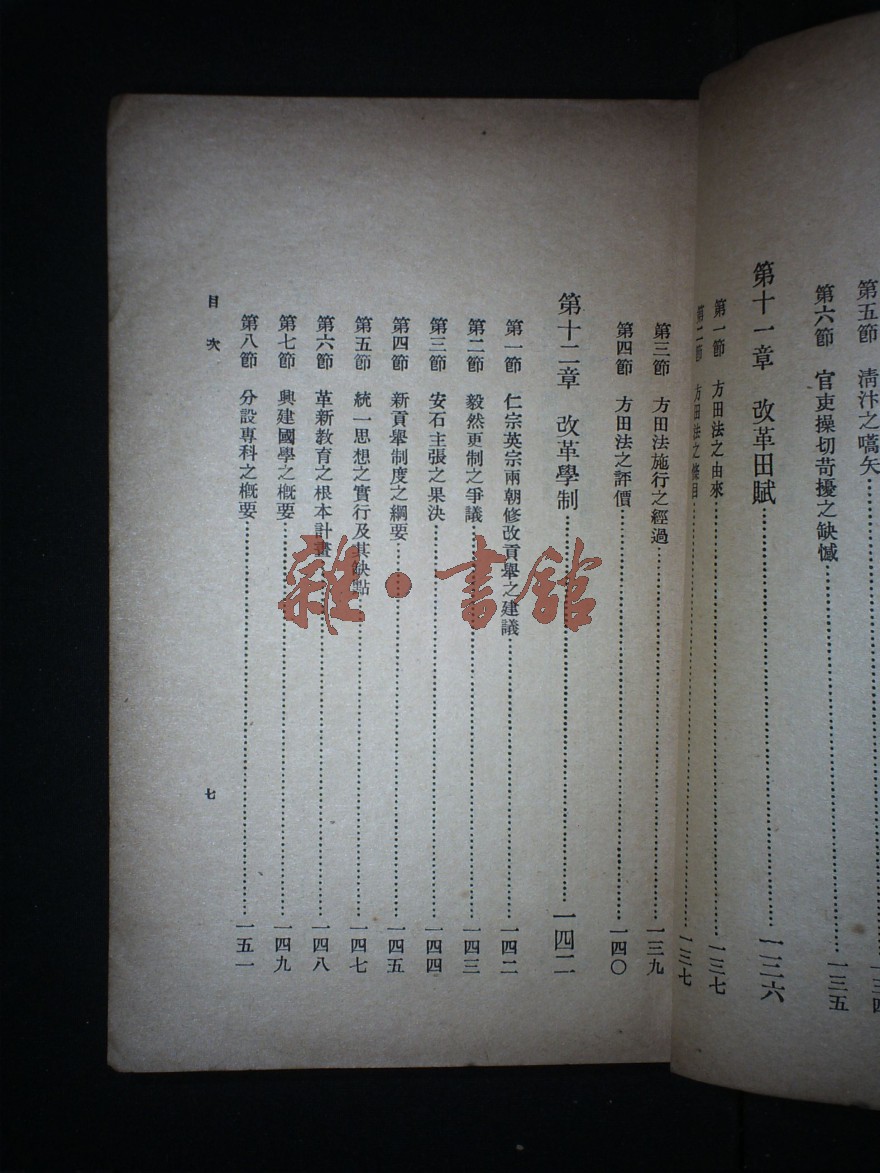 第五節 清汴之嚆矢……一三四
第六節 官吏操切苛擾之缺憾……一三五
第十一章 改革田賦……一三六
第一節 方田法之由來……一三七
第二節 方田法之條目……一三七
第三節 方田法施行之經過……一三九
第四節 方田法之評價……一四〇
第十二章 改革學制……一四二
第一節 仁宗英宗兩朝修改貢舉之建議……一四二
第二節 毅然更制之爭議……一四三
第三節 安石主張之果決……一四四
第四節 新貢舉制度之綱要……一四五
第五節 統一思想之實行及其缺點……一四七
第六節 革新教育之根本計畫……一四八
第七節 興建國學之概要……一四九
第八節 分設專科之概要……一五一
目次
七
雜·書館